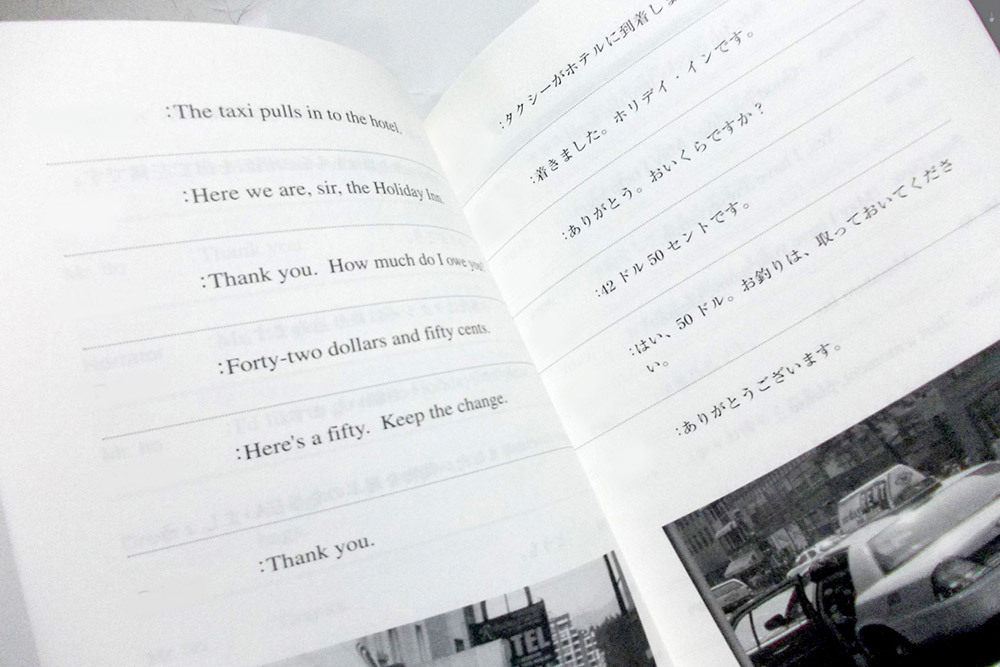 :The taxi pulls in to the hotel.
:Here we are, sir, the Holiday Inn.
:Thank you. How much do I owe you?
:Forty-two dollars and fifty cents.
:Here's a fifty. Keep the change.
:Thank you.
HOTEL
:タクシーがホテルに到着しま
:着きました。ホリデイ・インです。
:ありがとう。おいくらですか？
:42ドル50セントです。
:はい、50ドル。お釣りは、取っておいてくださ
い。
:ありがとうございます。